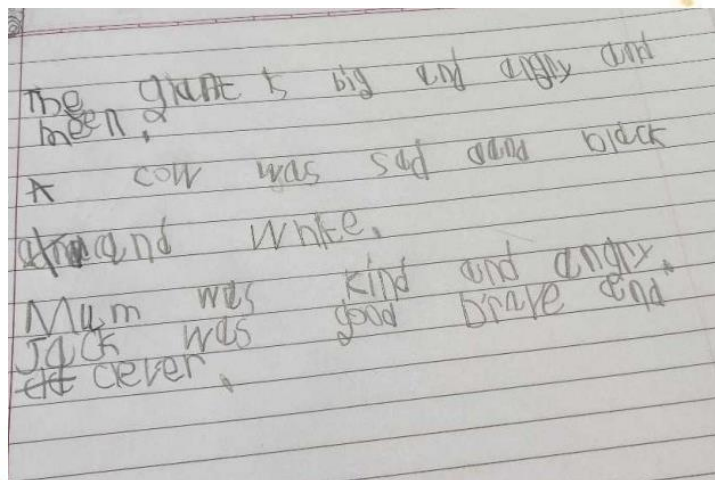 The giant is big and angry and
meen.
A cow was sad aand black
and white.
Mum was kind and angry.
Jack was good brave and
clever.